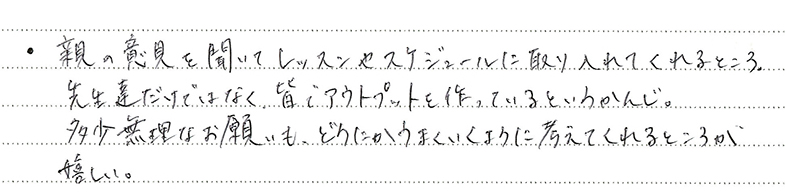 ・親の意見を聞いてレッスンやスケジュールに取り入れてくれるところ。
先生達だけではなく、皆でアウトプットを作っているというかんじ。
多少無理なお願いも、どうにかうまくいくように考えてくれるところが
嬉しい。